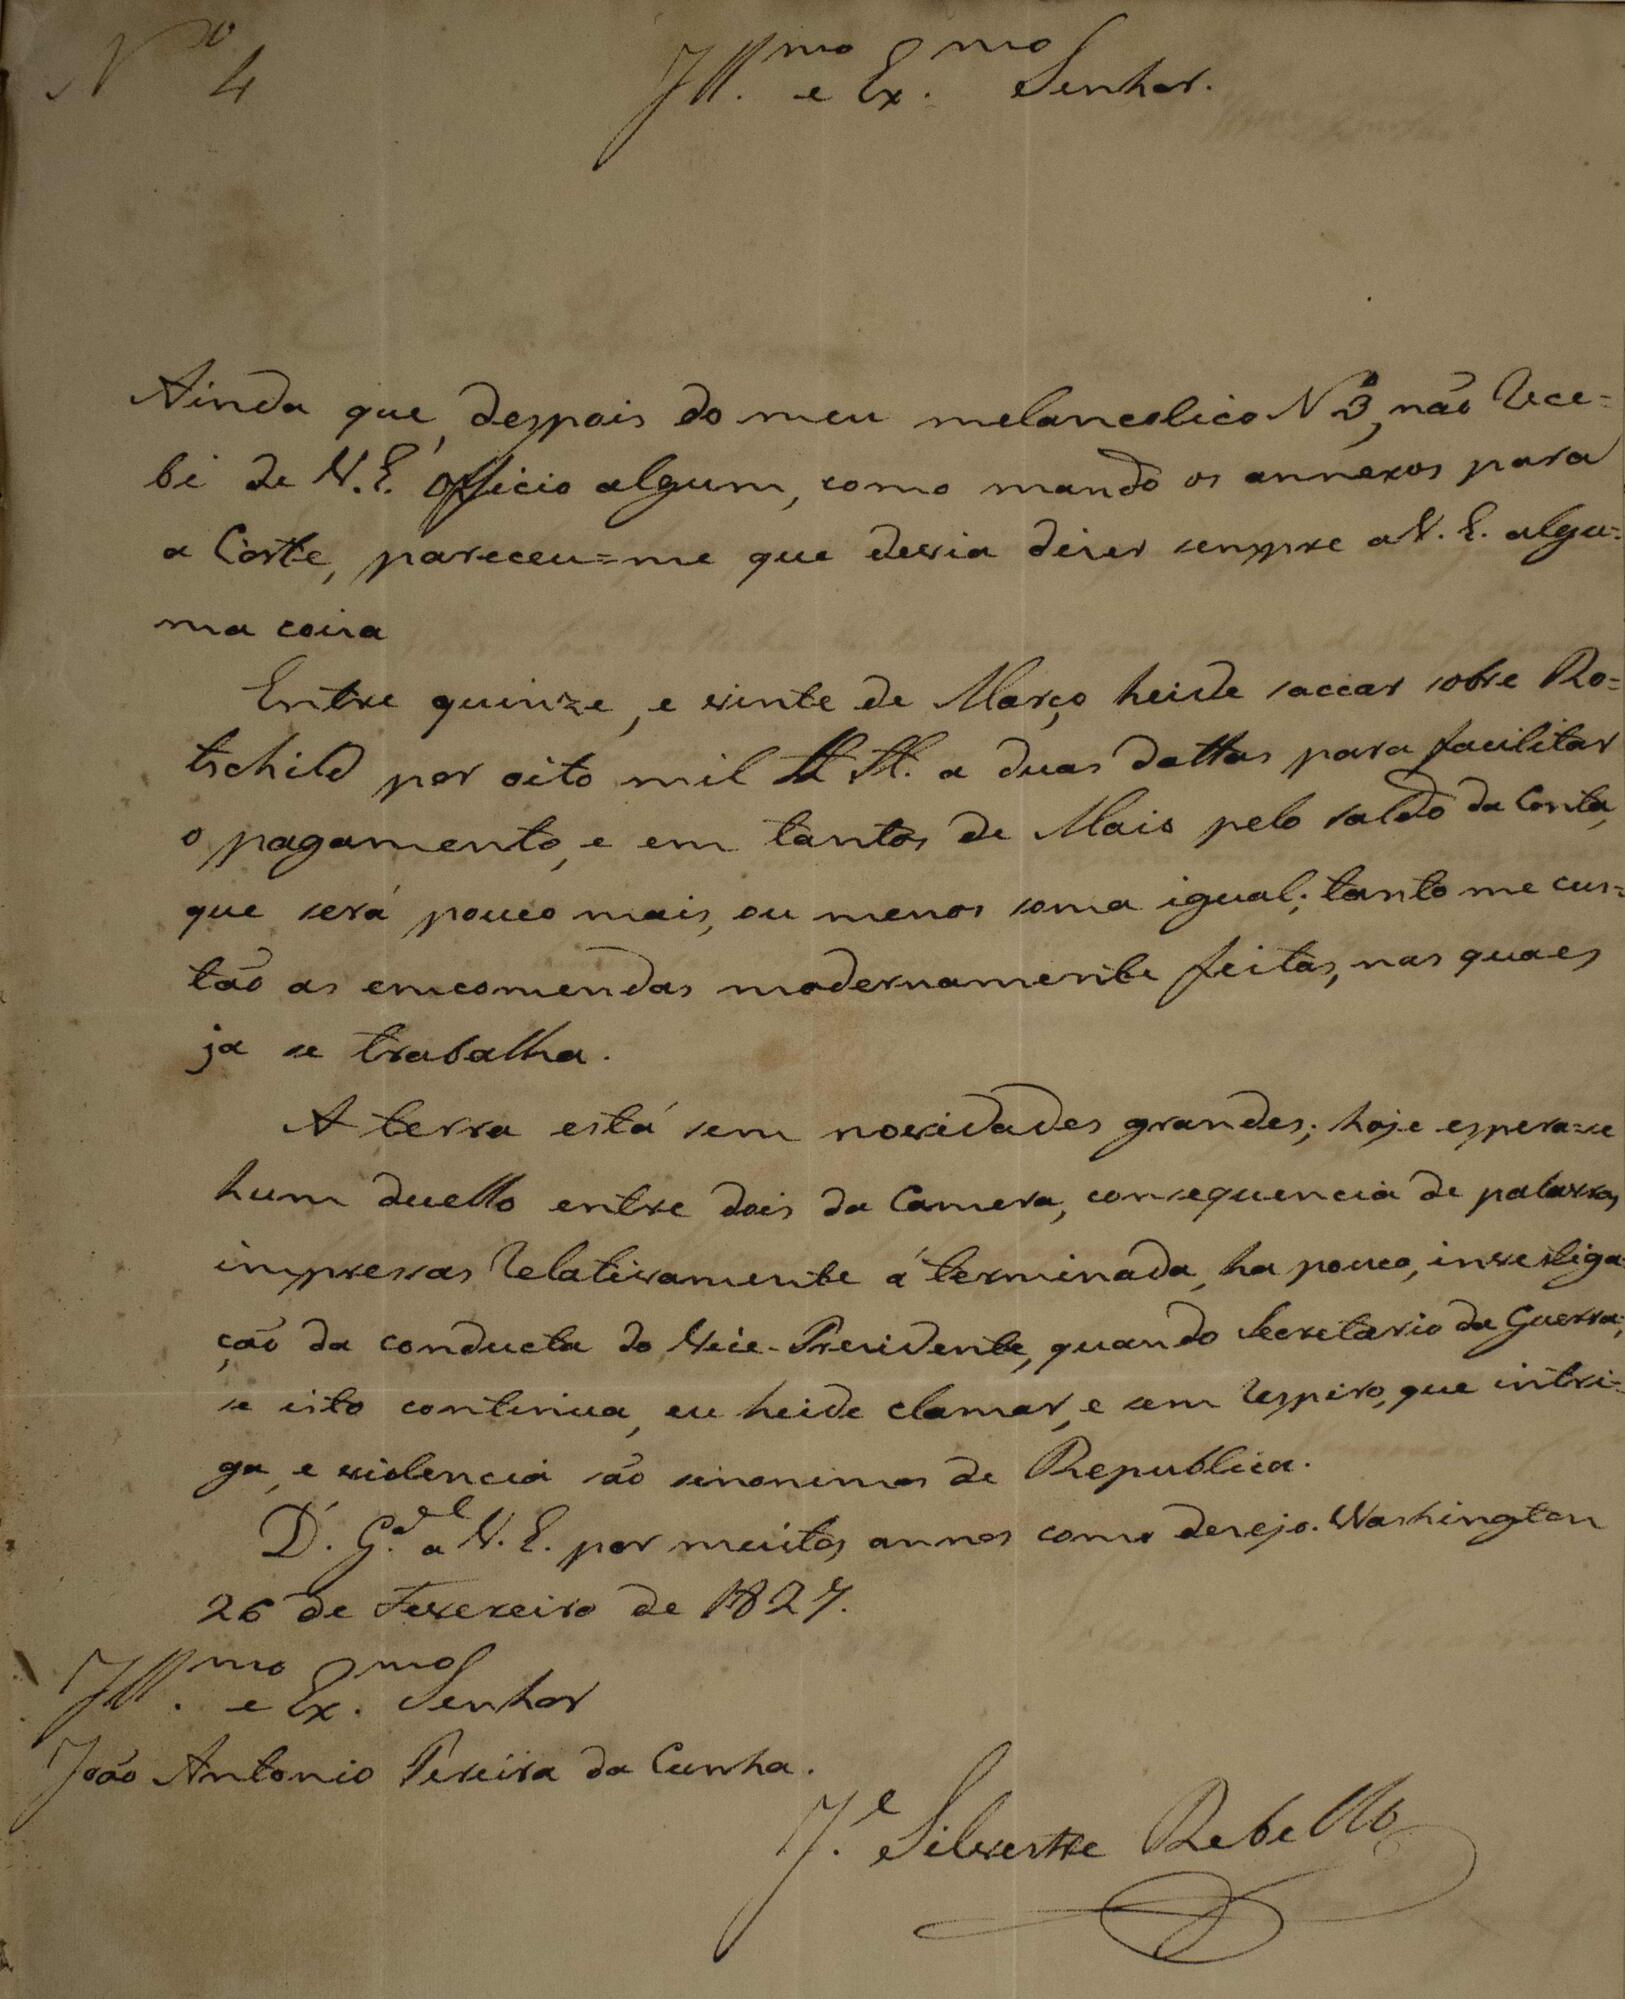 Nº 4
Ill.mo e Ex.mo Senhor.
Ainda que, despois do meu melancolico Nº 3, não rece=
bi de V. E. officio algum, como mando os annexos para
a Corte, pareceu=me que devia dizer sempre a V. E. algu=
ma coisa
Entre quinze, e vinte de Março heide saccar sobre Ro=
tschild por oito mil ££. a duas dattas para facilitar
o pagamento, e em tantos de Maio pelo saldo da Conta,
que será pouco mais, ou menos soma igual; tanto me cus=
tão as emcomendas modernamente feitas, nas quaes
ja se trabalha.
A terra está sem novidades grandes; hoje espera=se
hum duello entre dois da Camera, consequencia de palavras
impressas relativamente á terminada, ha pouco, investiga=
ção da conducta do Vice-Presidente, quando Secretario da Guerra;
se isto continua, eu heide clamar, e sem respiro, que intri=
ga, e violencia são sinonimos de Republica.
D. G.de a V. E. por muitos annos como desejo. Washington
26 de Fevereiro de 1827.
Ill.mo e Ex.mo Senhor
João Antonio Pereira da Cunha.
J.e Silvestre Rebello